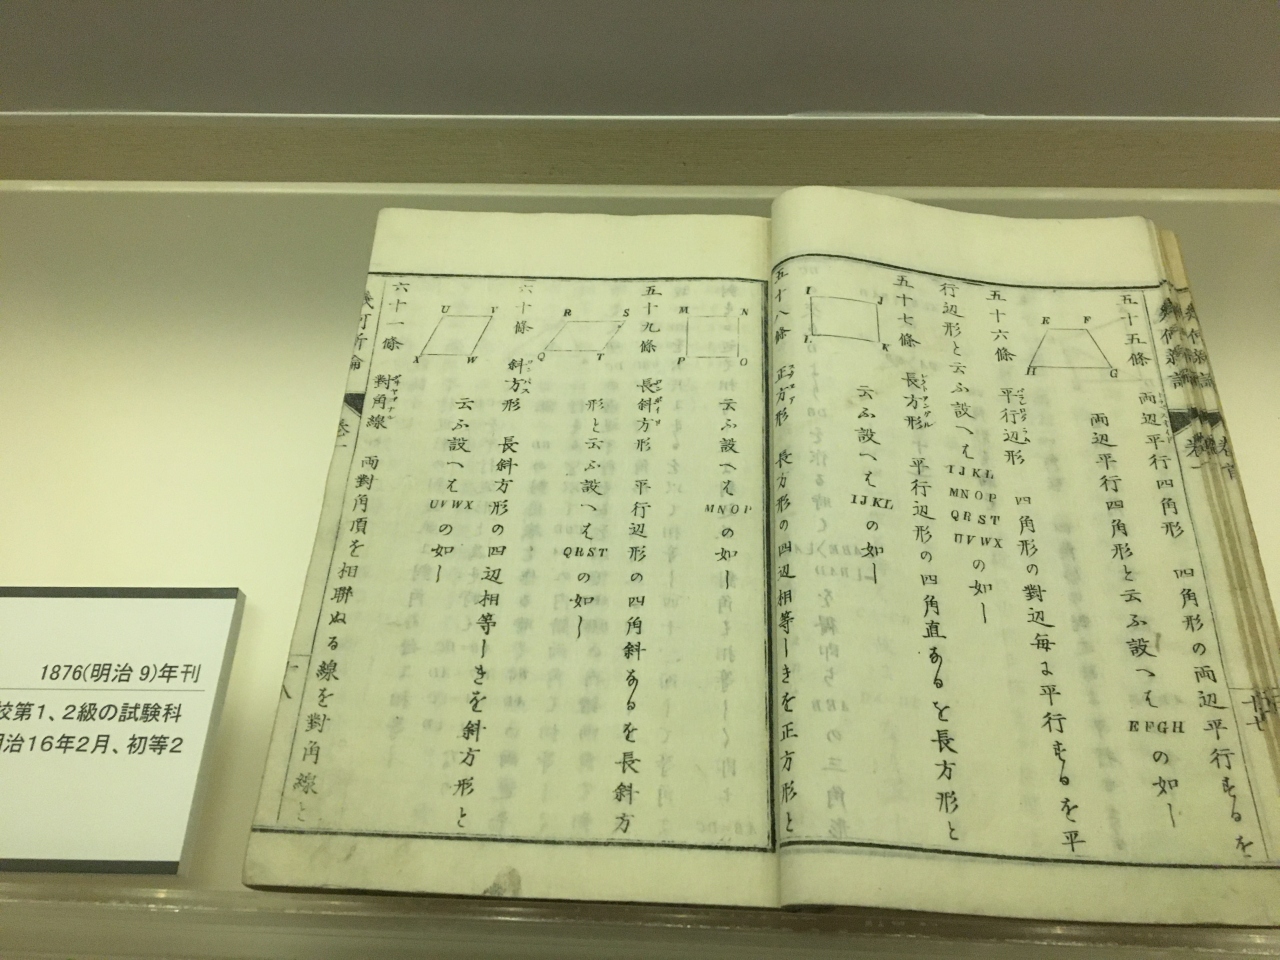 五十五條 両辺平行四角形 四角形の両辺平行するを
両辺平行四角形と云ふ設へは EFGH の如し
E F
H G
五十六條 平行辺形 四角形の對辺毎に平行するを平
行辺形と云ふ設へは IJKL MNOP QRST UVWX の如し
五十七條 長方形 平行辺形の四角直あるを長方形と
云ふ設へは IJKL の如し
I J
L K
五十八條 正方形 長方形の四辺相等しきを正方形と
云ふ設へは MNOP の如し
M N
P O
五十九條 長斜方形 平行辺形の四角斜あるを長斜方
形と云ふ設へは QRST の如し
R S
Q T
六十條 斜方形 長斜方形の四辺相等しきを斜方形と
云ふ設へは UVWX の如し
U V
X W
六十一條 對角線 両對角頂を相聯ぬる線を對角線と
卷一
十八
1876(明治 9)年刊
校第1、2級の試験科
明治16年2月、初等2